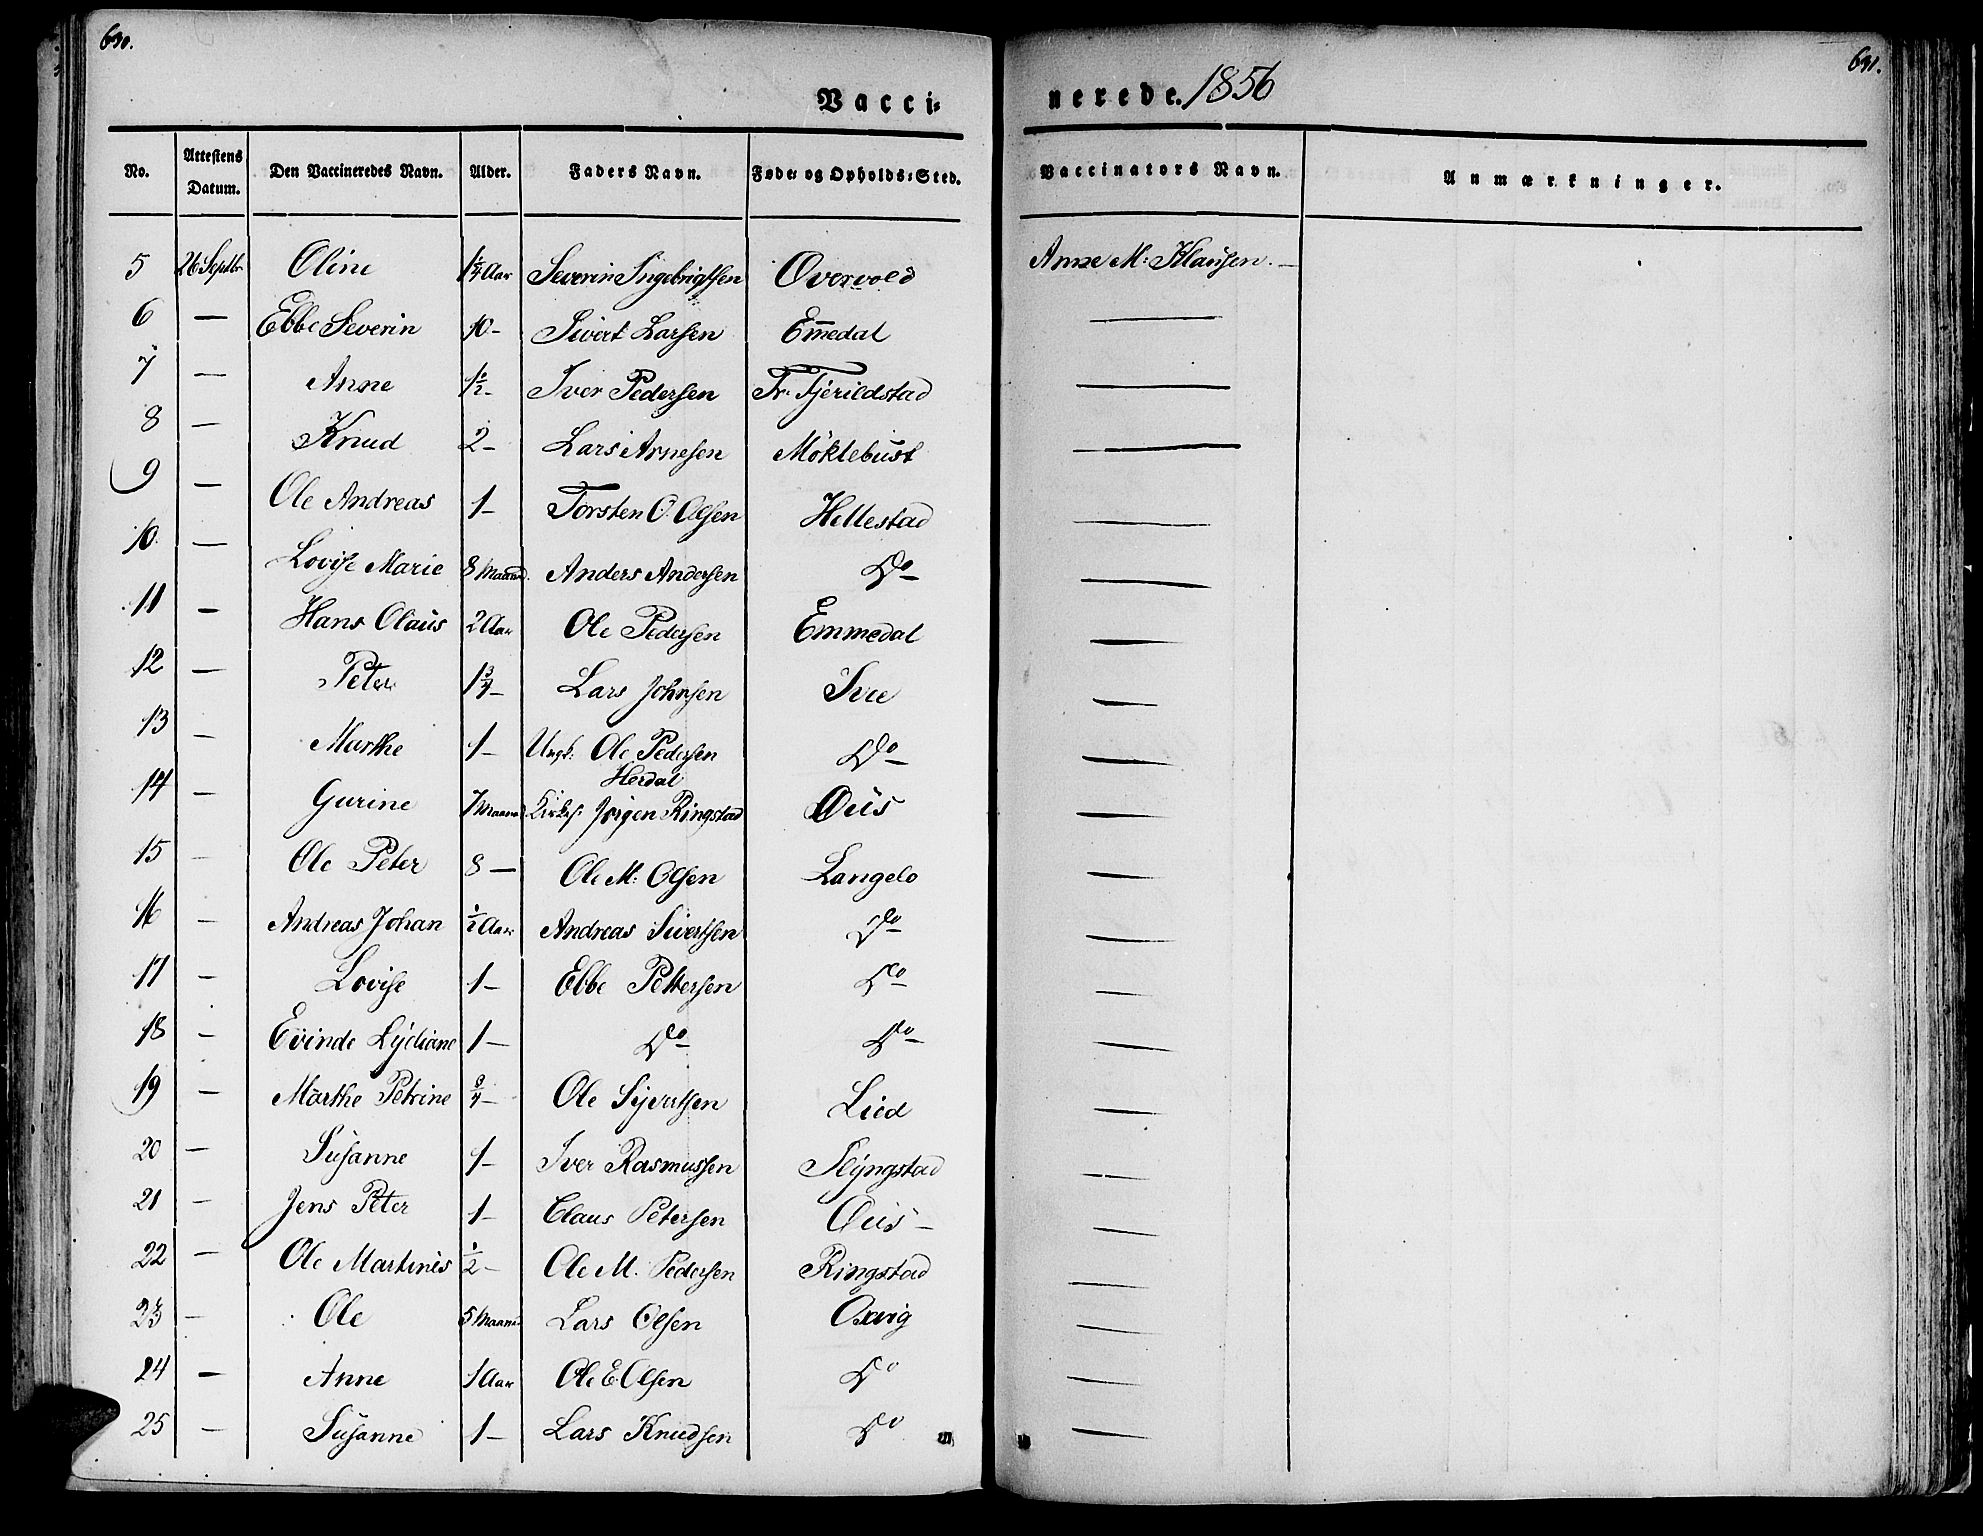 630. 631.
Vacci= nerede. 1856
No. Attestens Datum. Den Vaccineredes Navn. Alder. Faders Navn. Føde= og Opholds=Sted. Vaccinators Navn. Anmærkninger.
5 26 Septbr Oline Aar Severin Ingebrigtsen Overvold Anne M: Klausen. —
6 — Ebbe Severin 10 – Sivert Larsen Em̅edal —
7 — Anne 1½ – Iver Pedersen Fr. Fjerildstad —
8 — Knud 2 – Lars Arnesen Möklebust —
9 — Ole Andreas 1 – Torsten O. Olsen Hellestad —
10. — Lovise Marie 8 Maaned. Anders Andersen Do –
11 — Hans Olaus 2 Aar Ole Pedersen Emmedal —
12 — Peter 1¾ – Lars Johnsen Sve —
13 — Marthe 1 – Ungk: Ole Pedersen Herdal Do –
14 — Gurine 7 Maaned Kirkes: Jørgen Ringstad Øus —
15 — Ole Peter 8 — Ole M: Olsen Langelo —
16 — Andreas Johan ½ Aar Andreas Sivertsen Do –
17 — Lovise 1 – Ebbe Pettersen Do –
18 — Evinde Lydiane 1 — Do – Do –
19 — Marthe Petrine ¾ – Ole Syvertsen Lied —
20 — Susanne 1 – Iver Rasmussen Slyngstad —
21 — Jens Peter 1 – Claus Petersen Øus –
22 — Ole Martinus ½ – Ole M. Pedersen Ringstad —
23 — Ole 5 Maaned Lars Olsen Oxvig —
24 — Anne 1 Aar Ole E. Olsen Do —
25 — Susanne 1 – Lars Knudsen Do —